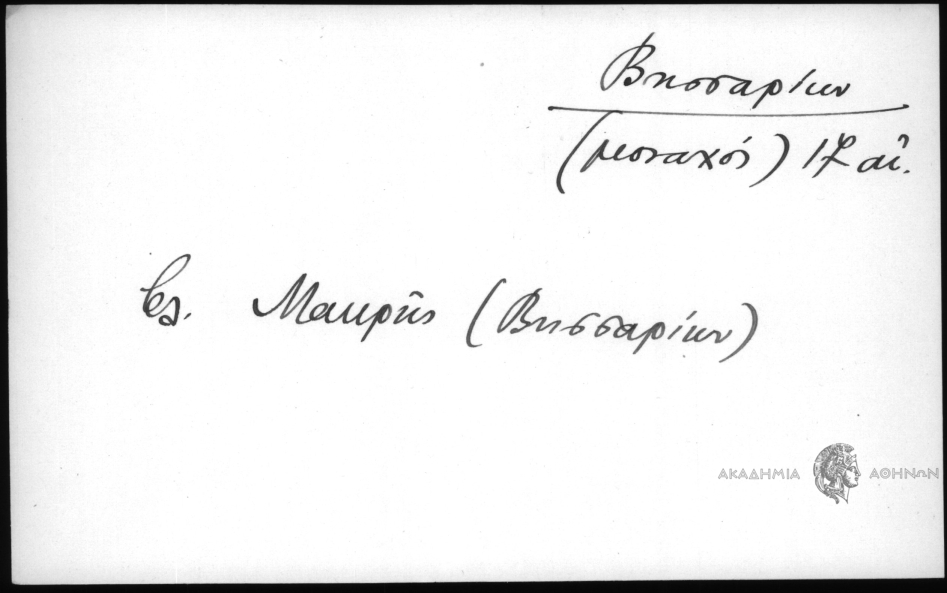 Βησσαρίων
(μοναχός) 17 αἰ.
βλ. Μακρῆς (Βησσαρίων)
ΑΚΑΔΗΜΙΑ ΑΘΗΝΩΝ